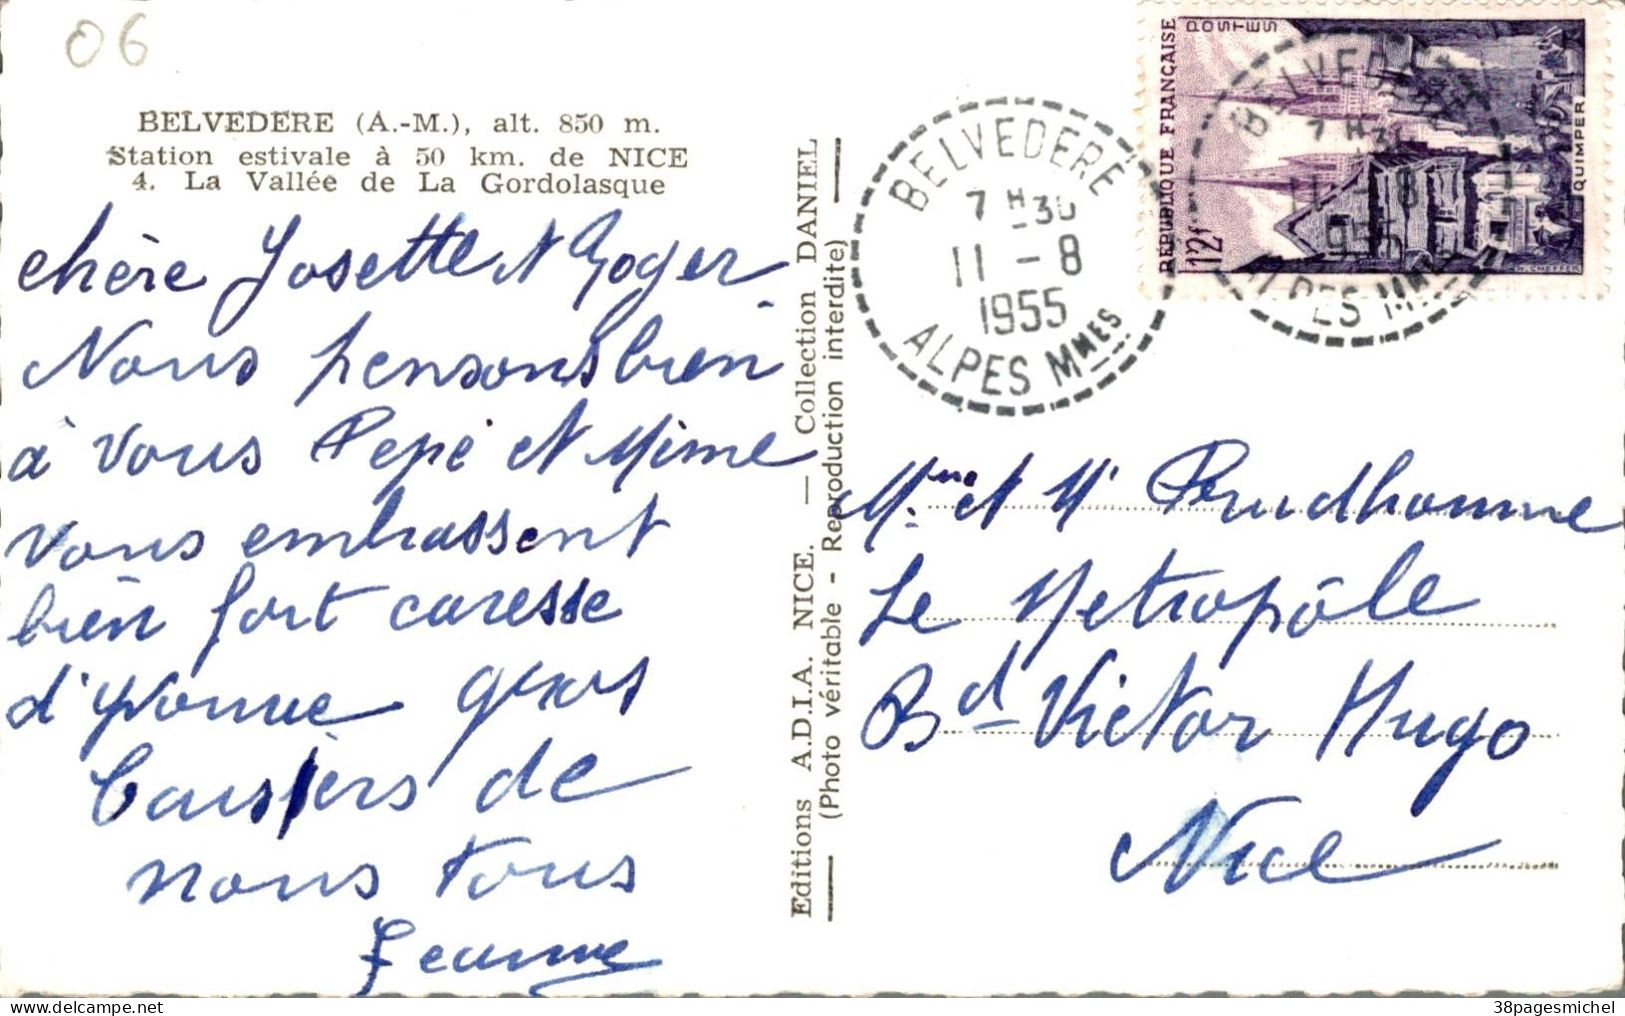 06
BELVEDERE (A.-M.), alt. 850 m.
Station estivale à 50 km. de NICE
4. La Vallée de La Gordolasque
chère Josette et Roger
Nous pensons bien
à vous Pepé et Mime
vous embrassent
bien fort caresse
d'Yvonne gros
baisiers de
nous tous
Jeanne
Editions A.D.I.A. NICE. — Collection DANIEL
(Photo véritable - Reproduction interdite)
BELVEDERE
7 H 30
11 - 8
1955
ALPES MMES
REPUBLIQUE FRANÇAISE
POSTES
12F
QUIMPER
H. CHEFFER
BELVEDERE
7 H 30
11 - 8
1955
ALPES MMES
Mme et Mr Prudhomme
Le Metropôle
Bd Victor Hugo
Nice
delcampe.net
38pagesmichel